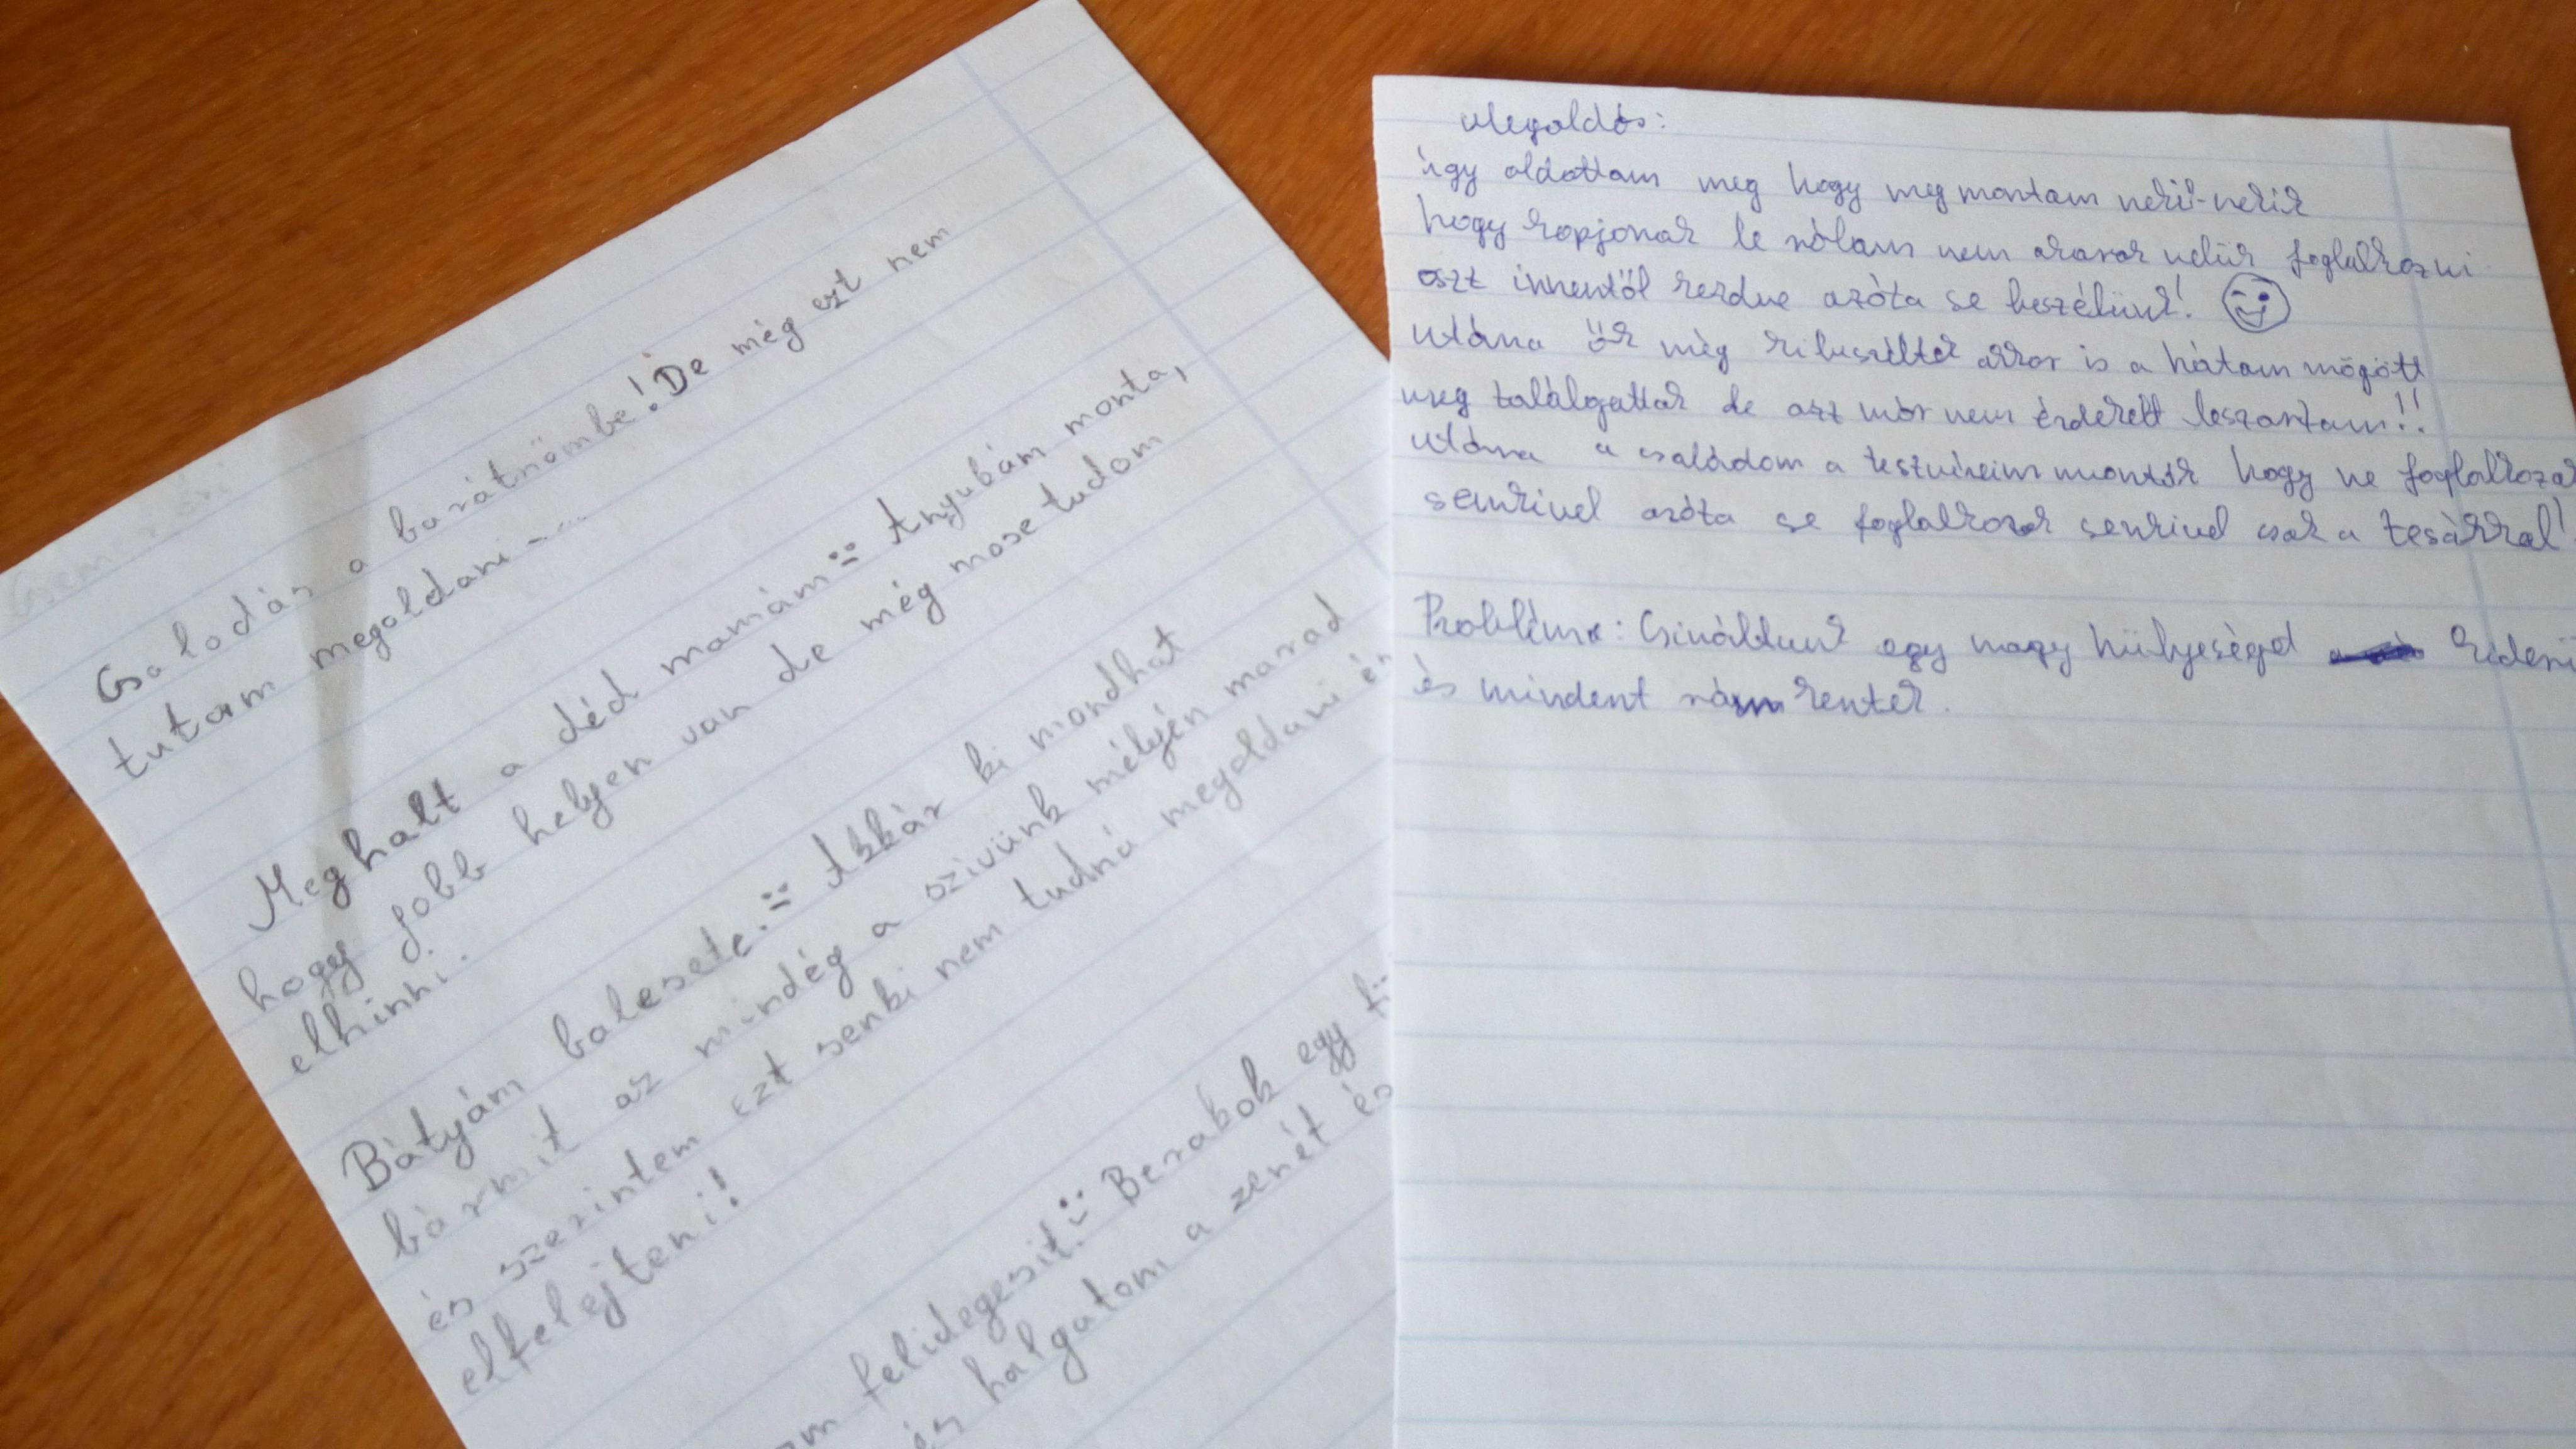 Csalodás a barátnőmbe! De még ezt nem
tutam megoldani - ....
Meghalt a déd mamám :( Anyukám monta,
hogy jobb helyen van de még mose tudom
elhinni.
Bátyám balesete. :( Akkár ki mondhat
bármit az mindég a szivünk mélyén marad
és szerintem ezt senki nem tudná megoldani és
elfelejteni!
felidegesit. :( Berakok egy
és halgatom a zenét és
Megoldás:
így oldottam meg hogy meg montam neki-nekik
hogy kopjonak le rólam nem akarok velük foglalkozni
oszt innentöl kezdve azóta se beszélünk!
utána ök még kibeszéltek akkor is a hátam mögött
meg találgattak de azt már nem érdekelt leszartam!!
utána a családom a testvéreim monták hogy ne foglalkozak
senkivel azóta se foglalkozok senkivel csak a tesákkal!
Probléma: Csináltunk egy nagy hülyeséget
és mindent rám kentek.